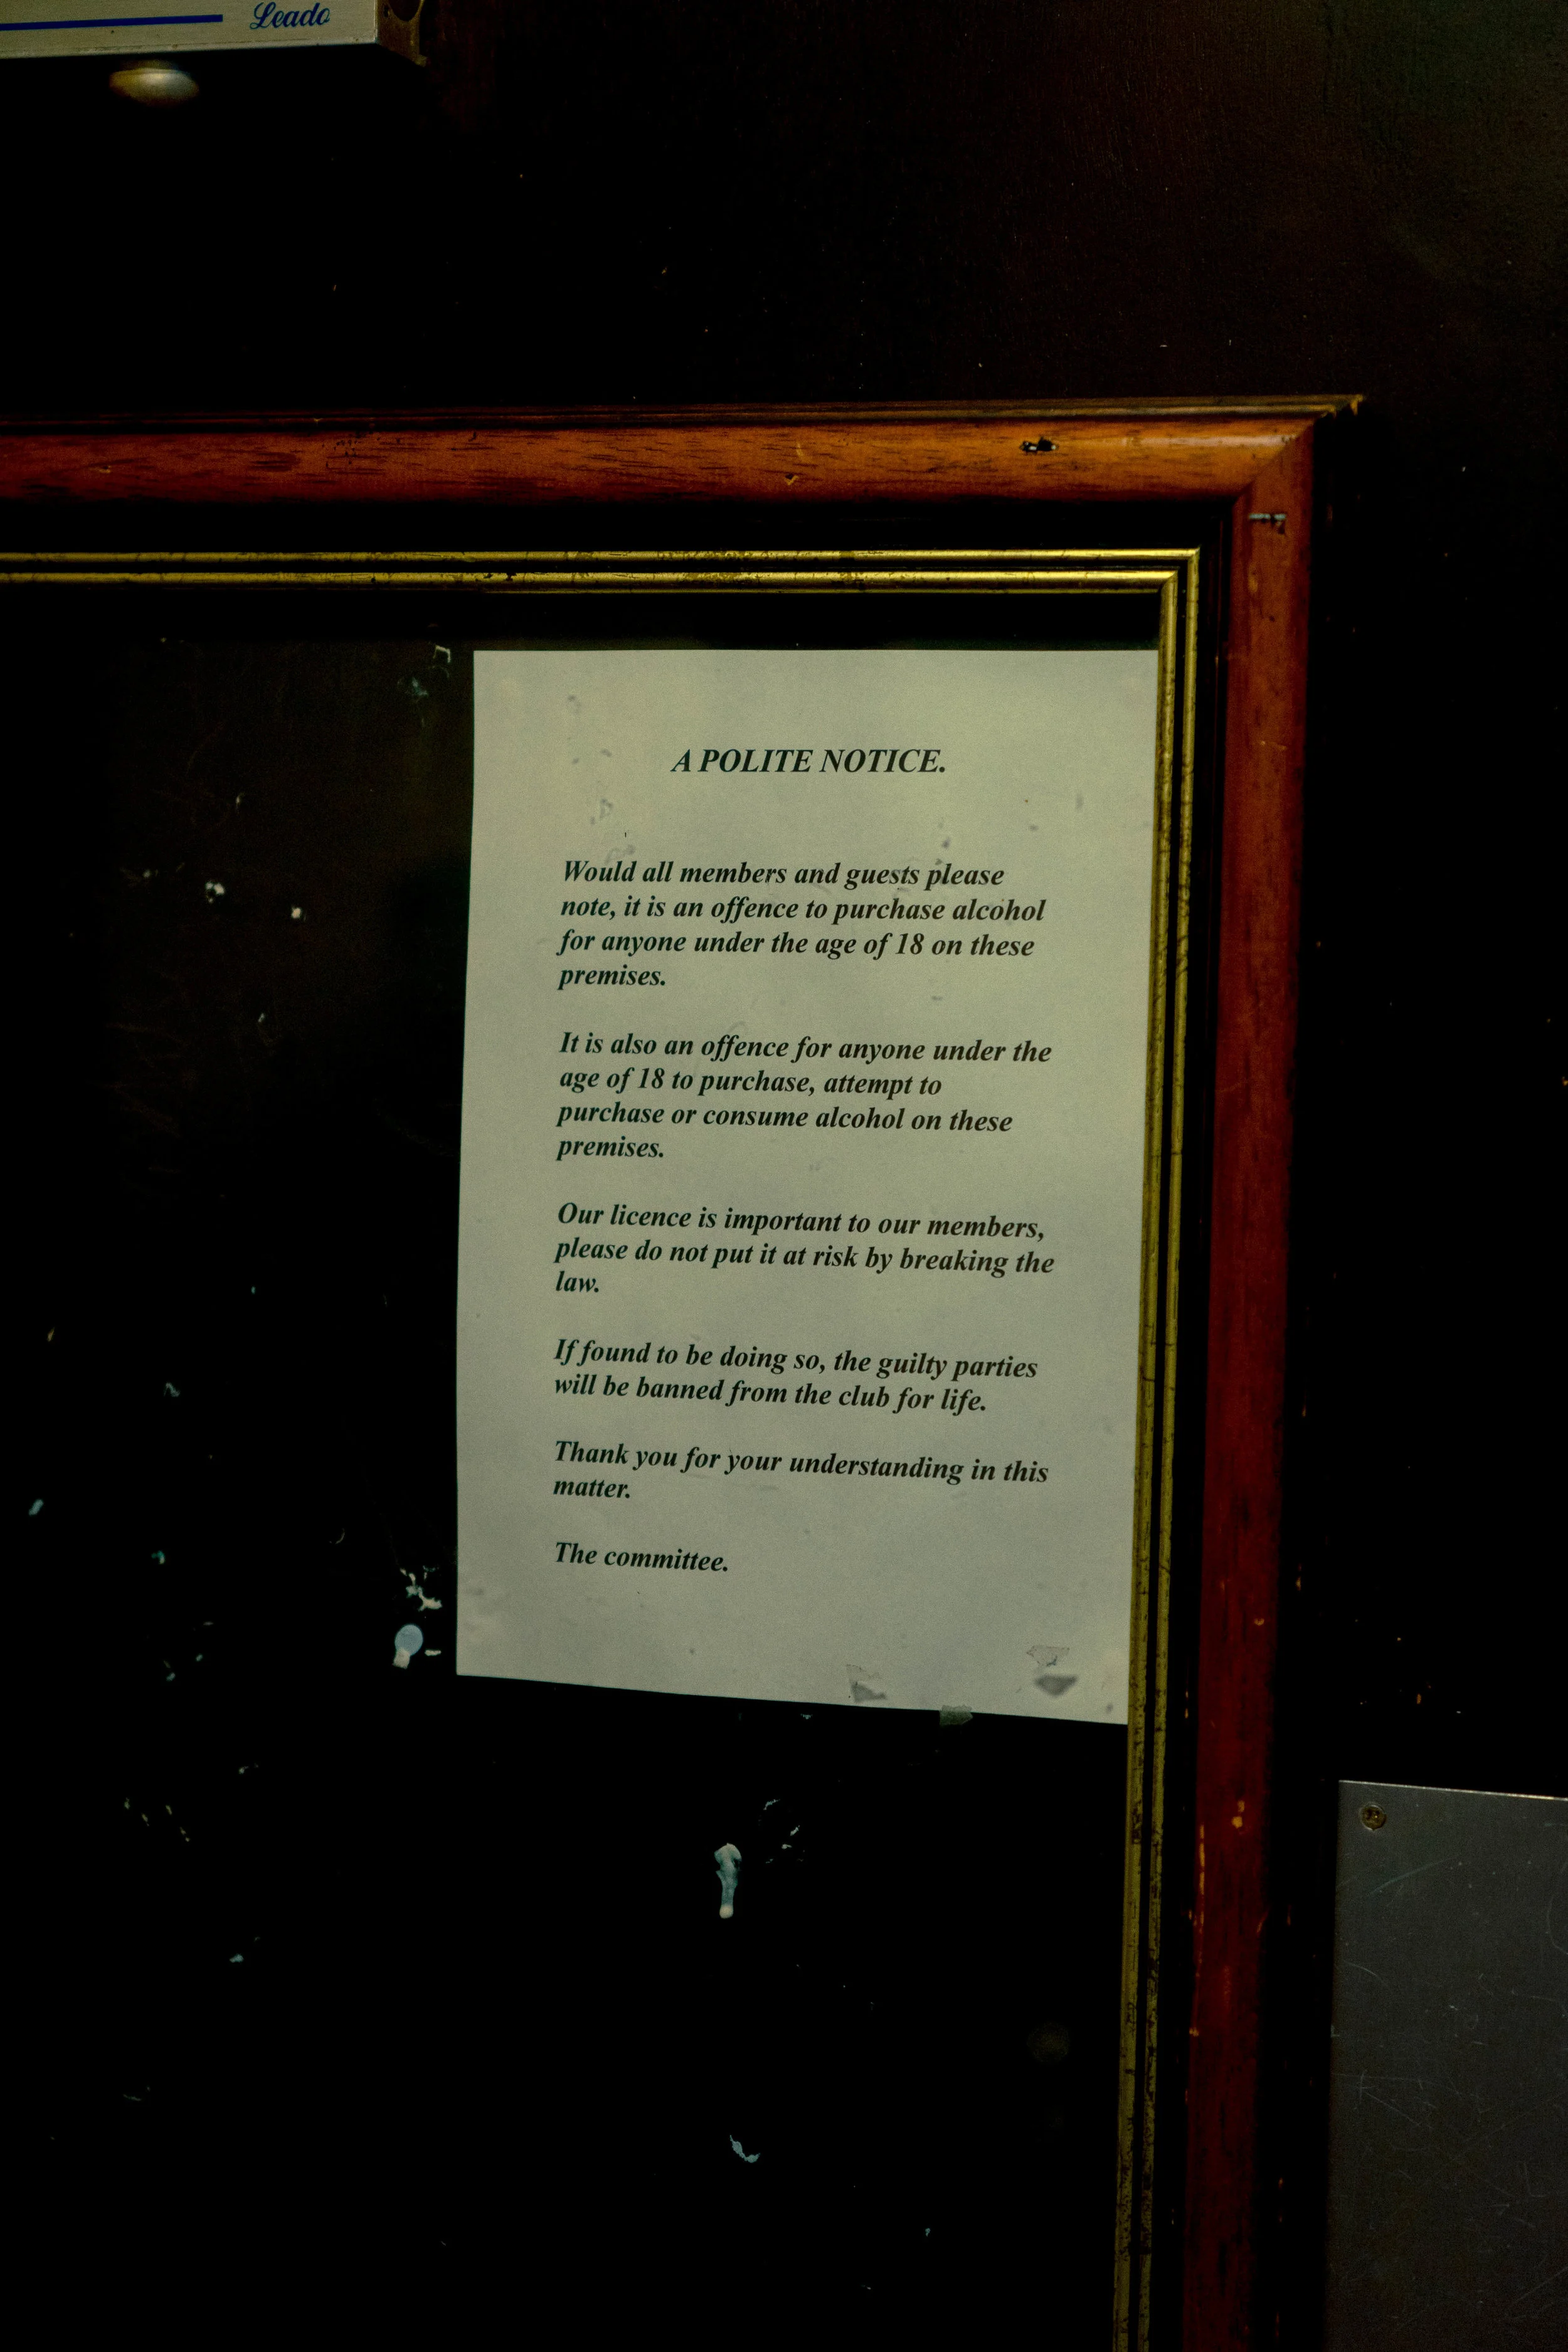 Leado
A POLITE NOTICE.
Would all members and guests please
note, it is an offence to purchase alcohol
for anyone under the age of 18 on these
premises.
It is also an offence for anyone under the
age of 18 to purchase, attempt to
purchase or consume alcohol on these
premises.
Our licence is important to our members,
please do not put it at risk by breaking the
law.
If found to be doing so, the guilty parties
will be banned from the club for life.
Thank you for your understanding in this
matter.
The committee.